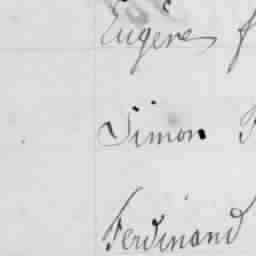 Eugène f
Simon F
Ferdinand